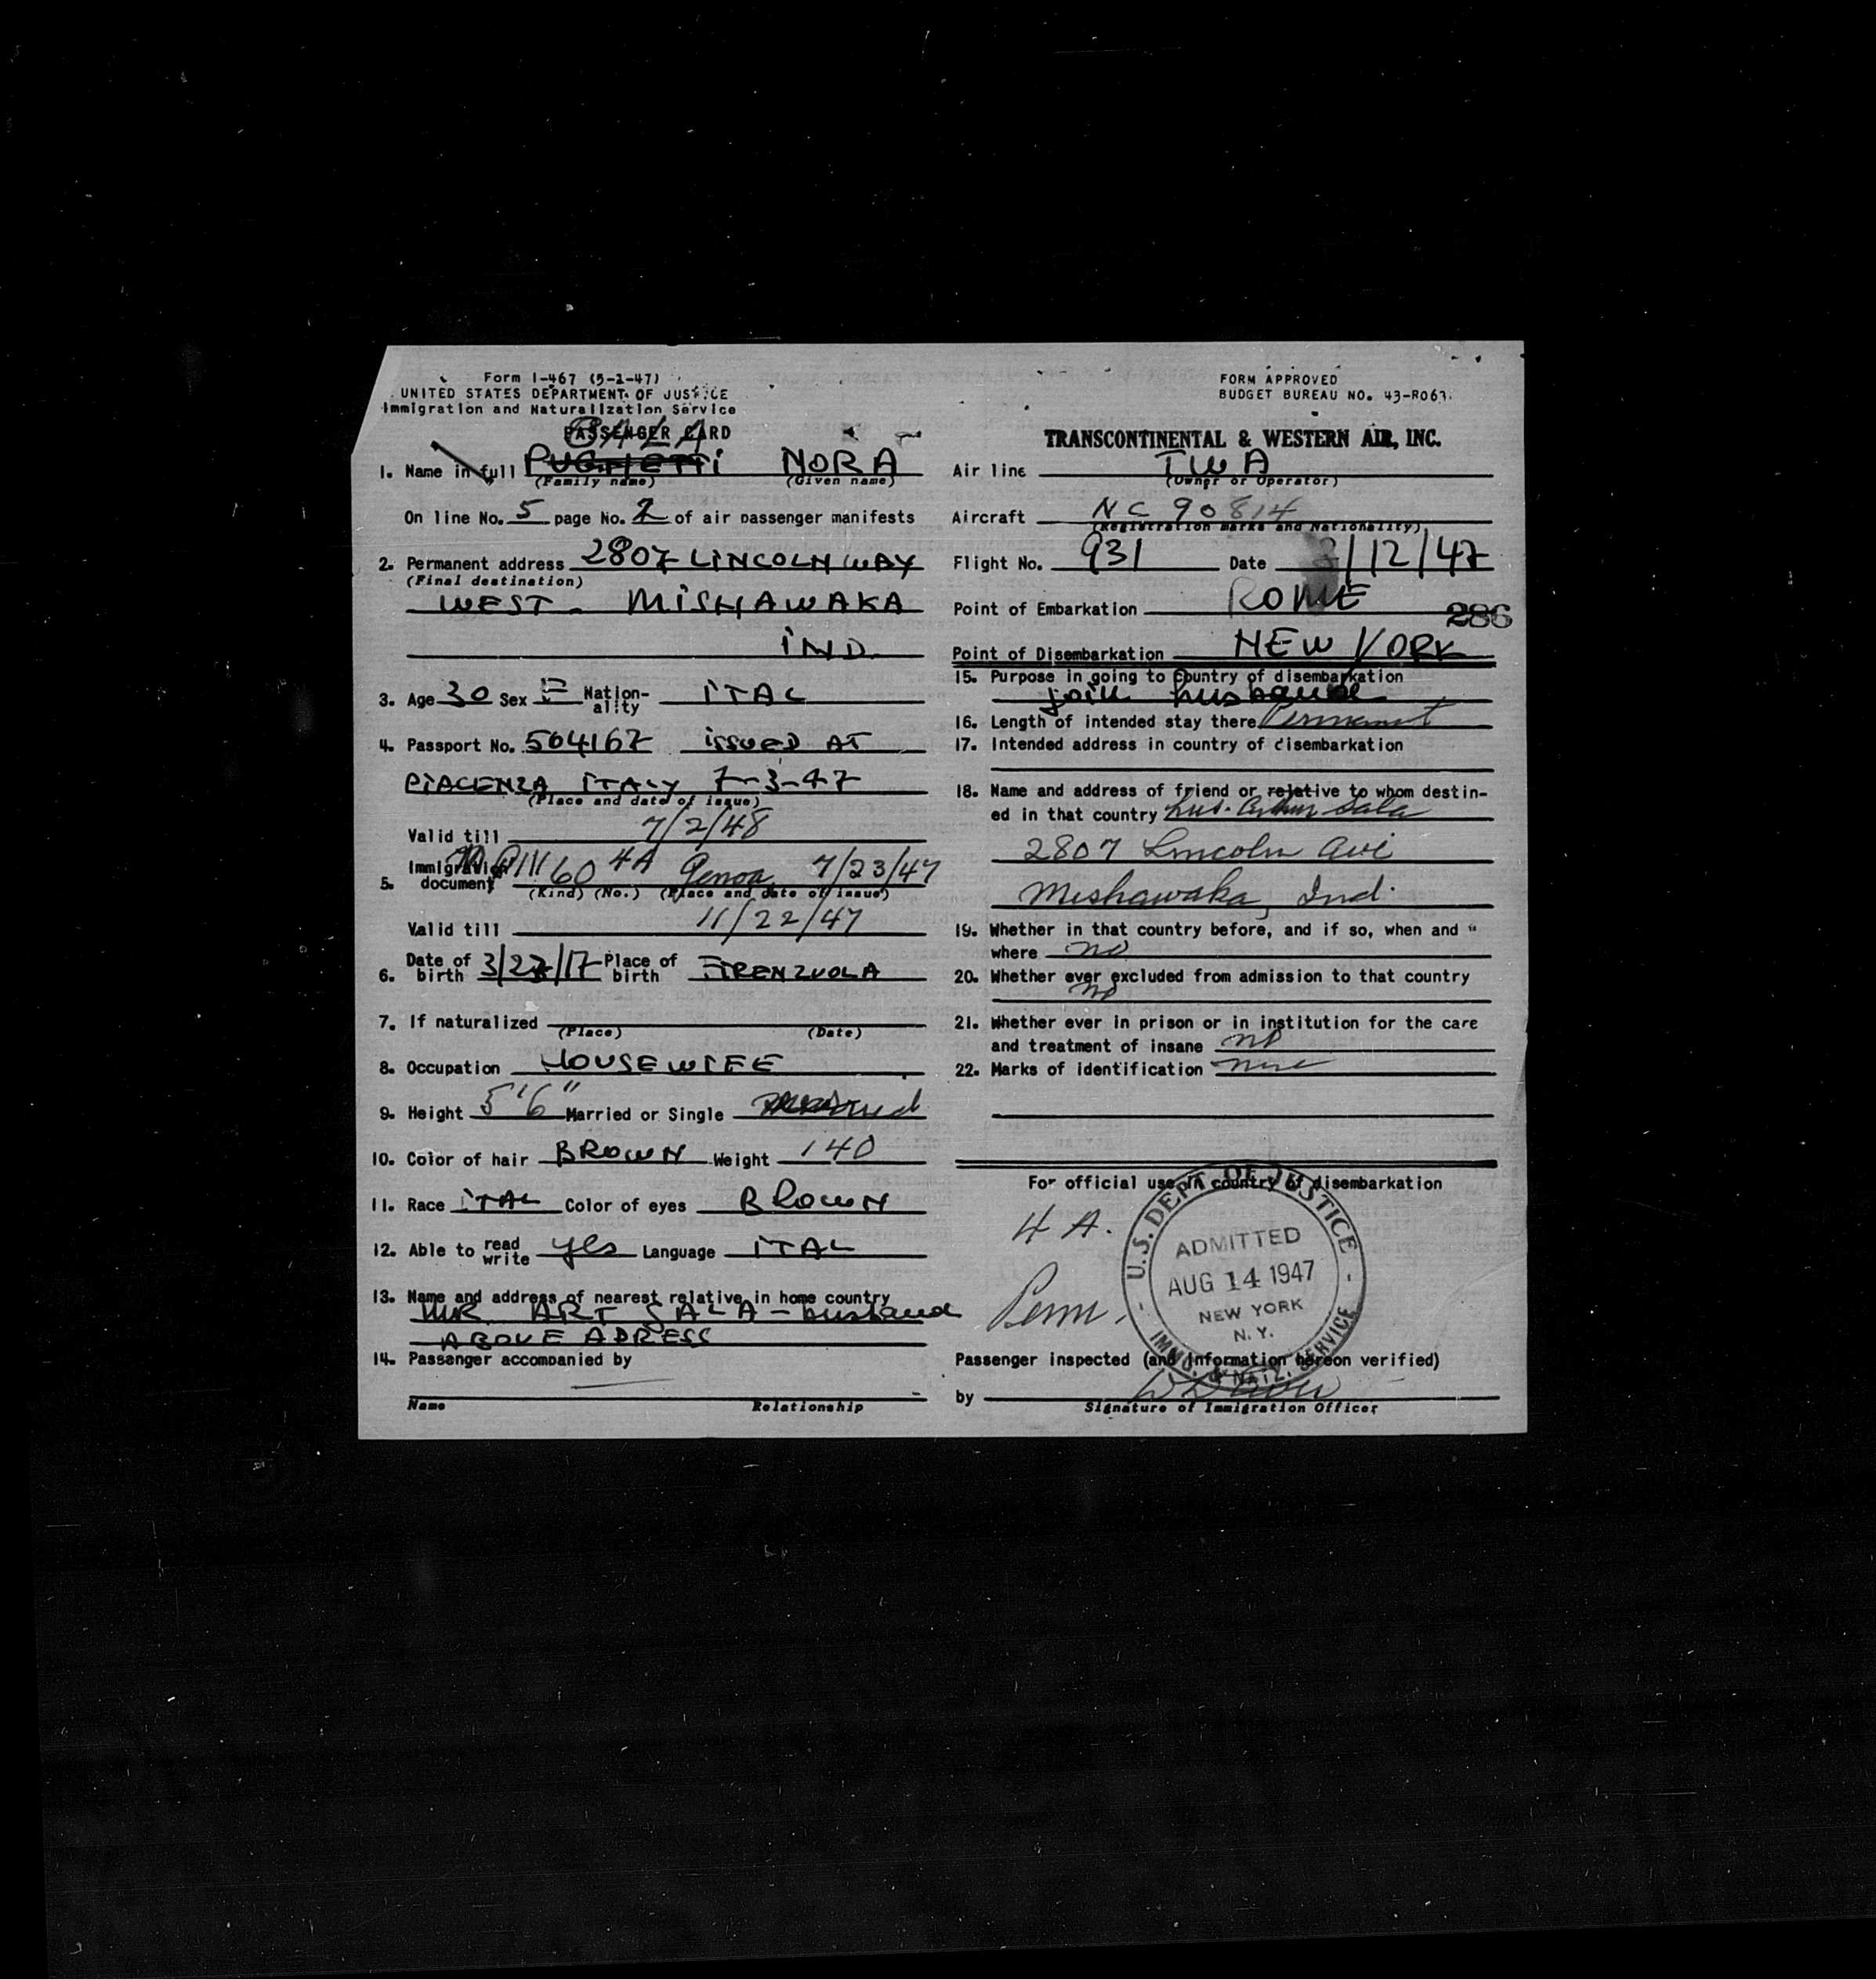 Form I-467 (5-1-47)
UNITED STATES DEPARTMENT OF JUSTICE
Immigration and Naturalization Service
PASSENGER CARD
SALA
1. Name in full PUGHETTI NORA
(Family name) (Given name)
On line No. 5 page No. 2 of air passenger manifests
2. Permanent address 2807 LINCOLN WAY
(Final destination)
WEST - MISHAWAKA
IND.
3. Age 30 Sex F Nation-ality ITAL
4. Passport No. 504167 ISSUED AT
PIACENZA ITALY 7-3-47
(Place and date of issue)
Valid till 7/2/48
5. Immigration document 60 4A Genoa 7/23/47
(Kind) (No.) (Place and date of issue)
Valid till 11/22/47
6. Date of birth 3/27/17 Place of birth FIRENZUOLA
7. If naturalized
(Place) (Date)
8. Occupation HOUSEWIFE
9. Height 5'6" Married or Single Married
10. Color of hair BROWN Weight 140
11. Race ITAL Color of eyes BROWN
12. Able to read write yes Language ITAL
13. Name and address of nearest relative in home country
MR ART SALA - husband
ABOVE ADRESS
14. Passenger accompanied by
Name Relationship
FORM APPROVED
BUDGET BUREAU NO. 43-R063.
TRANSCONTINENTAL & WESTERN AIR, INC.
Air line TWA
(Owner or Operator)
Aircraft NC 90814
(Registration marks and Nationality)
Flight No. 931 Date /12/47
Point of Embarkation ROME
286
Point of Disembarkation NEW YORK
15. Purpose in going to Country of disembarkation
join husband
16. Length of intended stay there Permanent
17. Intended address in country of disembarkation
18. Name and address of friend or relative to whom destin-
ed in that country hus. Arthur Sala
2807 Lincoln Ave
Mishawaka, Ind.
19. Whether in that country before, and if so, when and
where no
20. Whether ever excluded from admission to that country
no
21. Whether ever in prison or in institution for the care
and treatment of insane no
22. Marks of identification none
For official use in country of disembarkation
4 A.
Perm.
U.S. DEPT. OF JUSTICE
ADMITTED
AUG 14 1947
NEW YORK
N.Y.
IMMG. & NATZ. SERVICE
Passenger inspected (and information hereon verified)
by
Signature of Immigration Officer